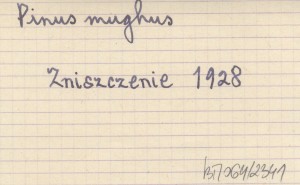 Pinus mughus
Zniszczenie 1928